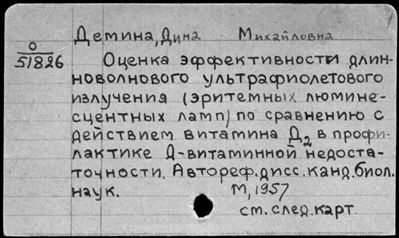 Демина, Дина Михайловна
О
51826
Оценка эффективности длин-
новолнового ультрафиолетового
излучения (эритемных люмине-
сцентных ламп) по сравнению с
действием витамина Д2 в профи-
лактике Д-витаминной недоста-
точности. Автореф.дисс.канд.биол.
наук. М, 1957
ст. след. карт.